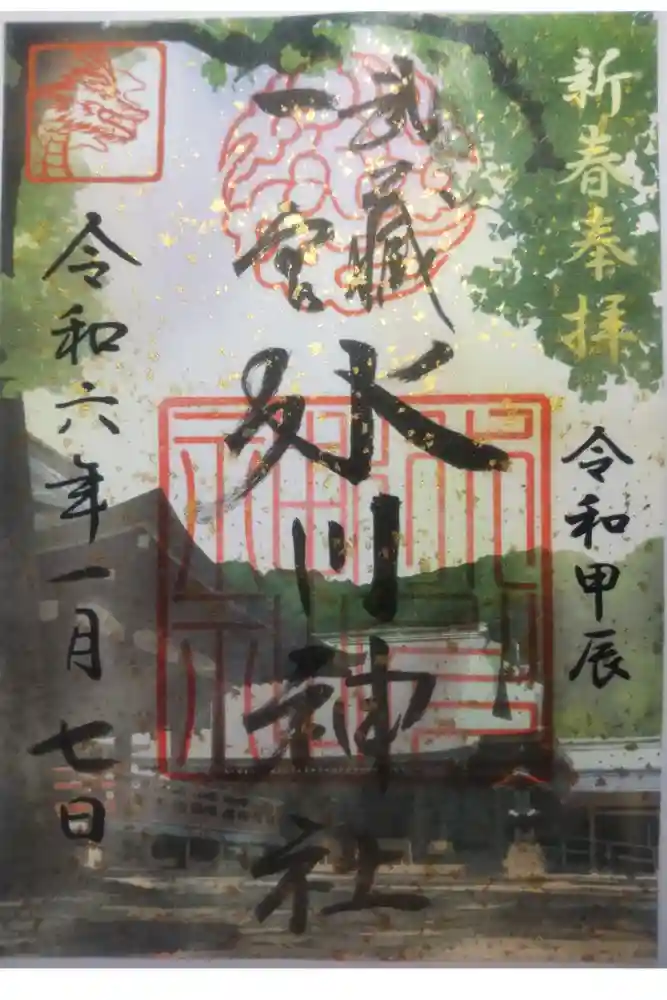 新春奉拝
令和甲辰
武蔵
一宮
氷川神社
令和六年一月七日
氷川神社